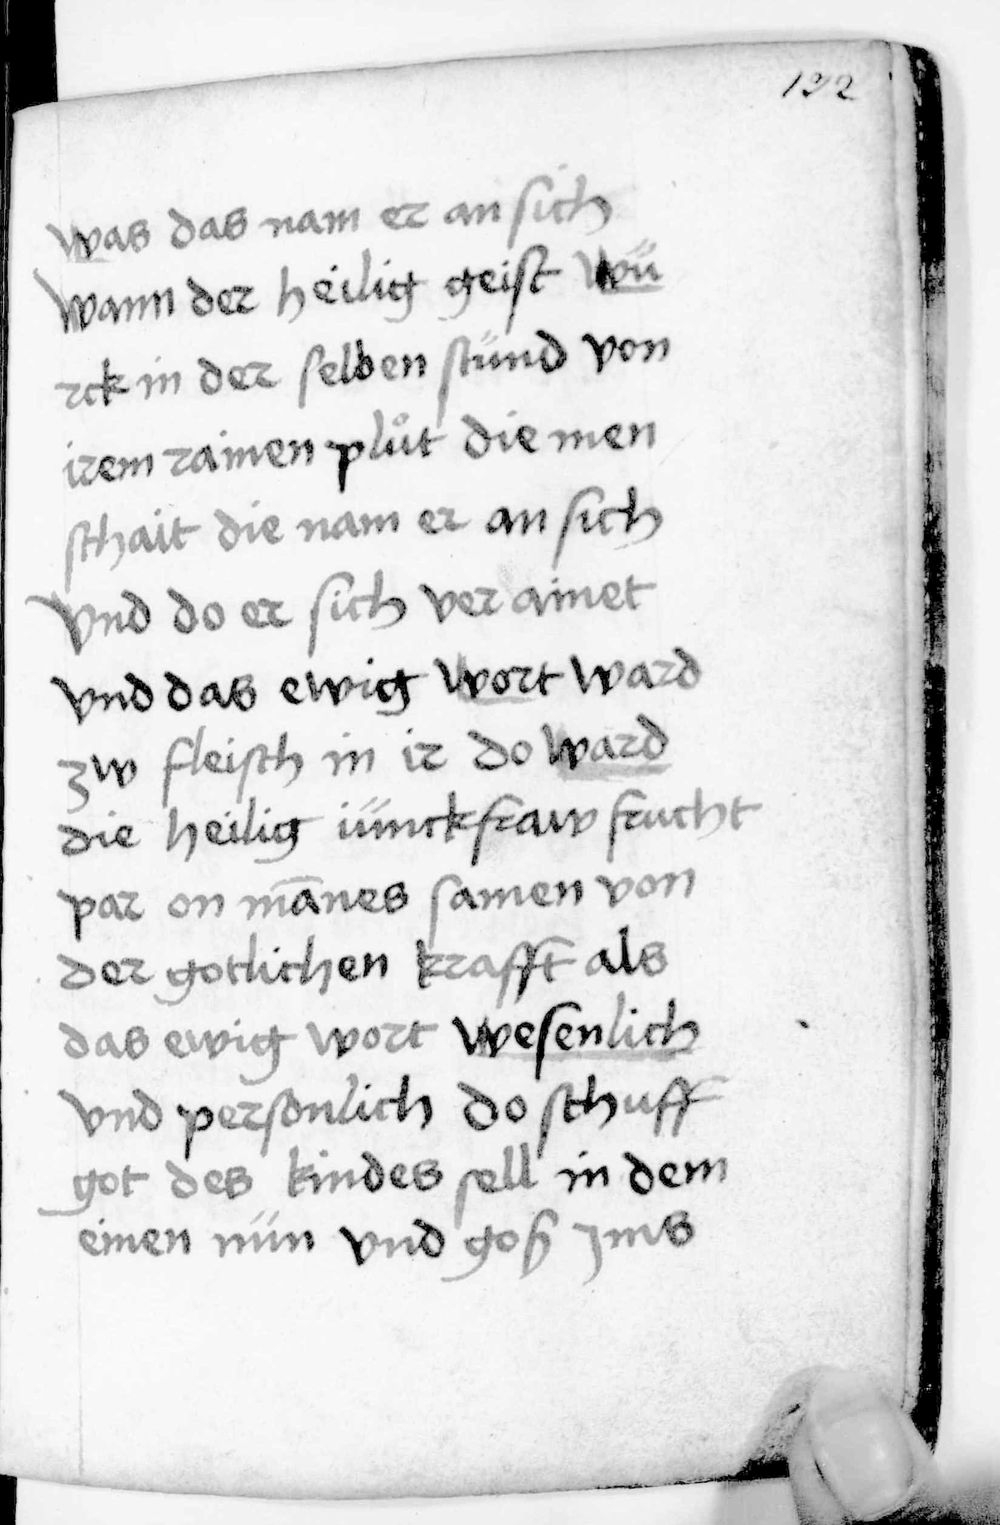 192
was das nam er an sich
wann der heilig geist wü
rck in der selben stünd von
irem rainen plůt die men
schait die nam er an sich
vnd do er sich ver ainet
vnd das ewig wort ward
zw fleisch in ir do ward
die heilig iünckfraw frucht
par on mānes samen von
der gotlichen krafft als
das ewig wort wesenlich
vnd personlich do schuff
got des kindes sell in dem
einen nün vnd goß jms